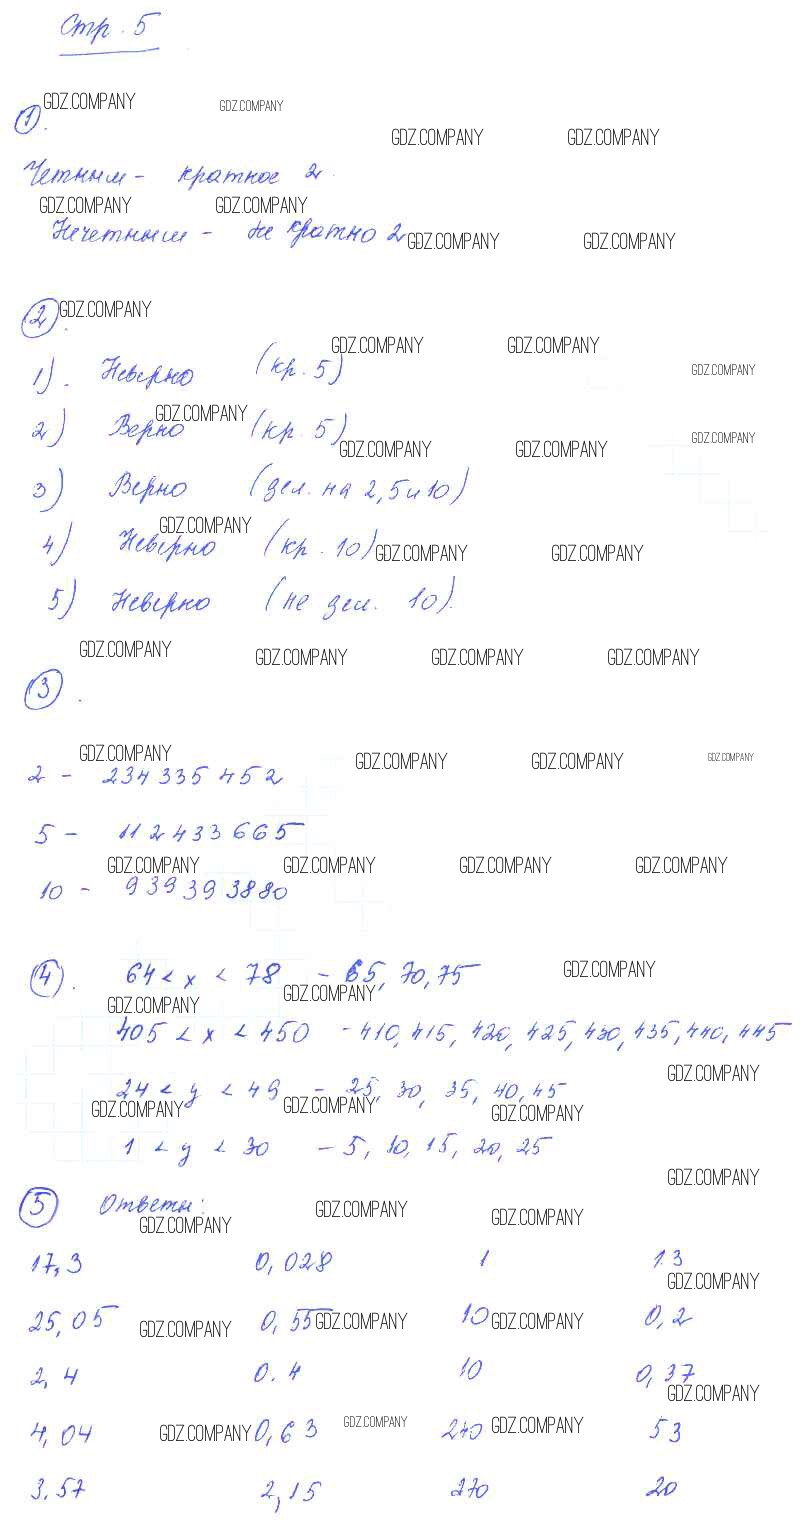 Стр. 5
GDZ.COMPANY GDZ.COMPANY
1.
GDZ.COMPANY GDZ.COMPANY
Четным - кратное 2.
GDZ.COMPANY GDZ.COMPANY
Нечетным - не кратно 2
GDZ.COMPANY GDZ.COMPANY
2. GDZ.COMPANY
GDZ.COMPANY GDZ.COMPANY
1). Неверно (кр. 5)
GDZ.COMPANY
GDZ.COMPANY
2) Верно (кр. 5)
GDZ.COMPANY GDZ.COMPANY GDZ.COMPANY
3) Верно (дел. на 2,5 и 10)
GDZ.COMPANY
4) Неверно (кр. 10)
GDZ.COMPANY GDZ.COMPANY
5) Неверно (не дел. 10).
GDZ.COMPANY GDZ.COMPANY GDZ.COMPANY GDZ.COMPANY
3.
GDZ.COMPANY GDZ.COMPANY GDZ.COMPANY GDZ.COMPANY
2 - 234 335 452
5 - 112 433 665
GDZ.COMPANY GDZ.COMPANY GDZ.COMPANY GDZ.COMPANY
10 - 939 39 3880
4. 64 < x < 78 - 65, 70, 75
GDZ.COMPANY
GDZ.COMPANY GDZ.COMPANY
405 < x < 450 - 410, 415, 420, 425, 430, 435, 440, 445
GDZ.COMPANY
24 < y < 49 - 25, 30, 35, 40, 45
GDZ.COMPANY GDZ.COMPANY GDZ.COMPANY
1 < y < 30 - 5, 10, 15, 20, 25
GDZ.COMPANY
5 Ответы:
GDZ.COMPANY GDZ.COMPANY GDZ.COMPANY
17,3 0,028 1 1.3
GDZ.COMPANY
25,05 0,55 10 0,2
GDZ.COMPANY GDZ.COMPANY GDZ.COMPANY
2,4 0.4 10 0,37
GDZ.COMPANY
4,04 0,63 240 53
GDZ.COMPANY GDZ.COMPANY GDZ.COMPANY
3.57 2,15 270 20